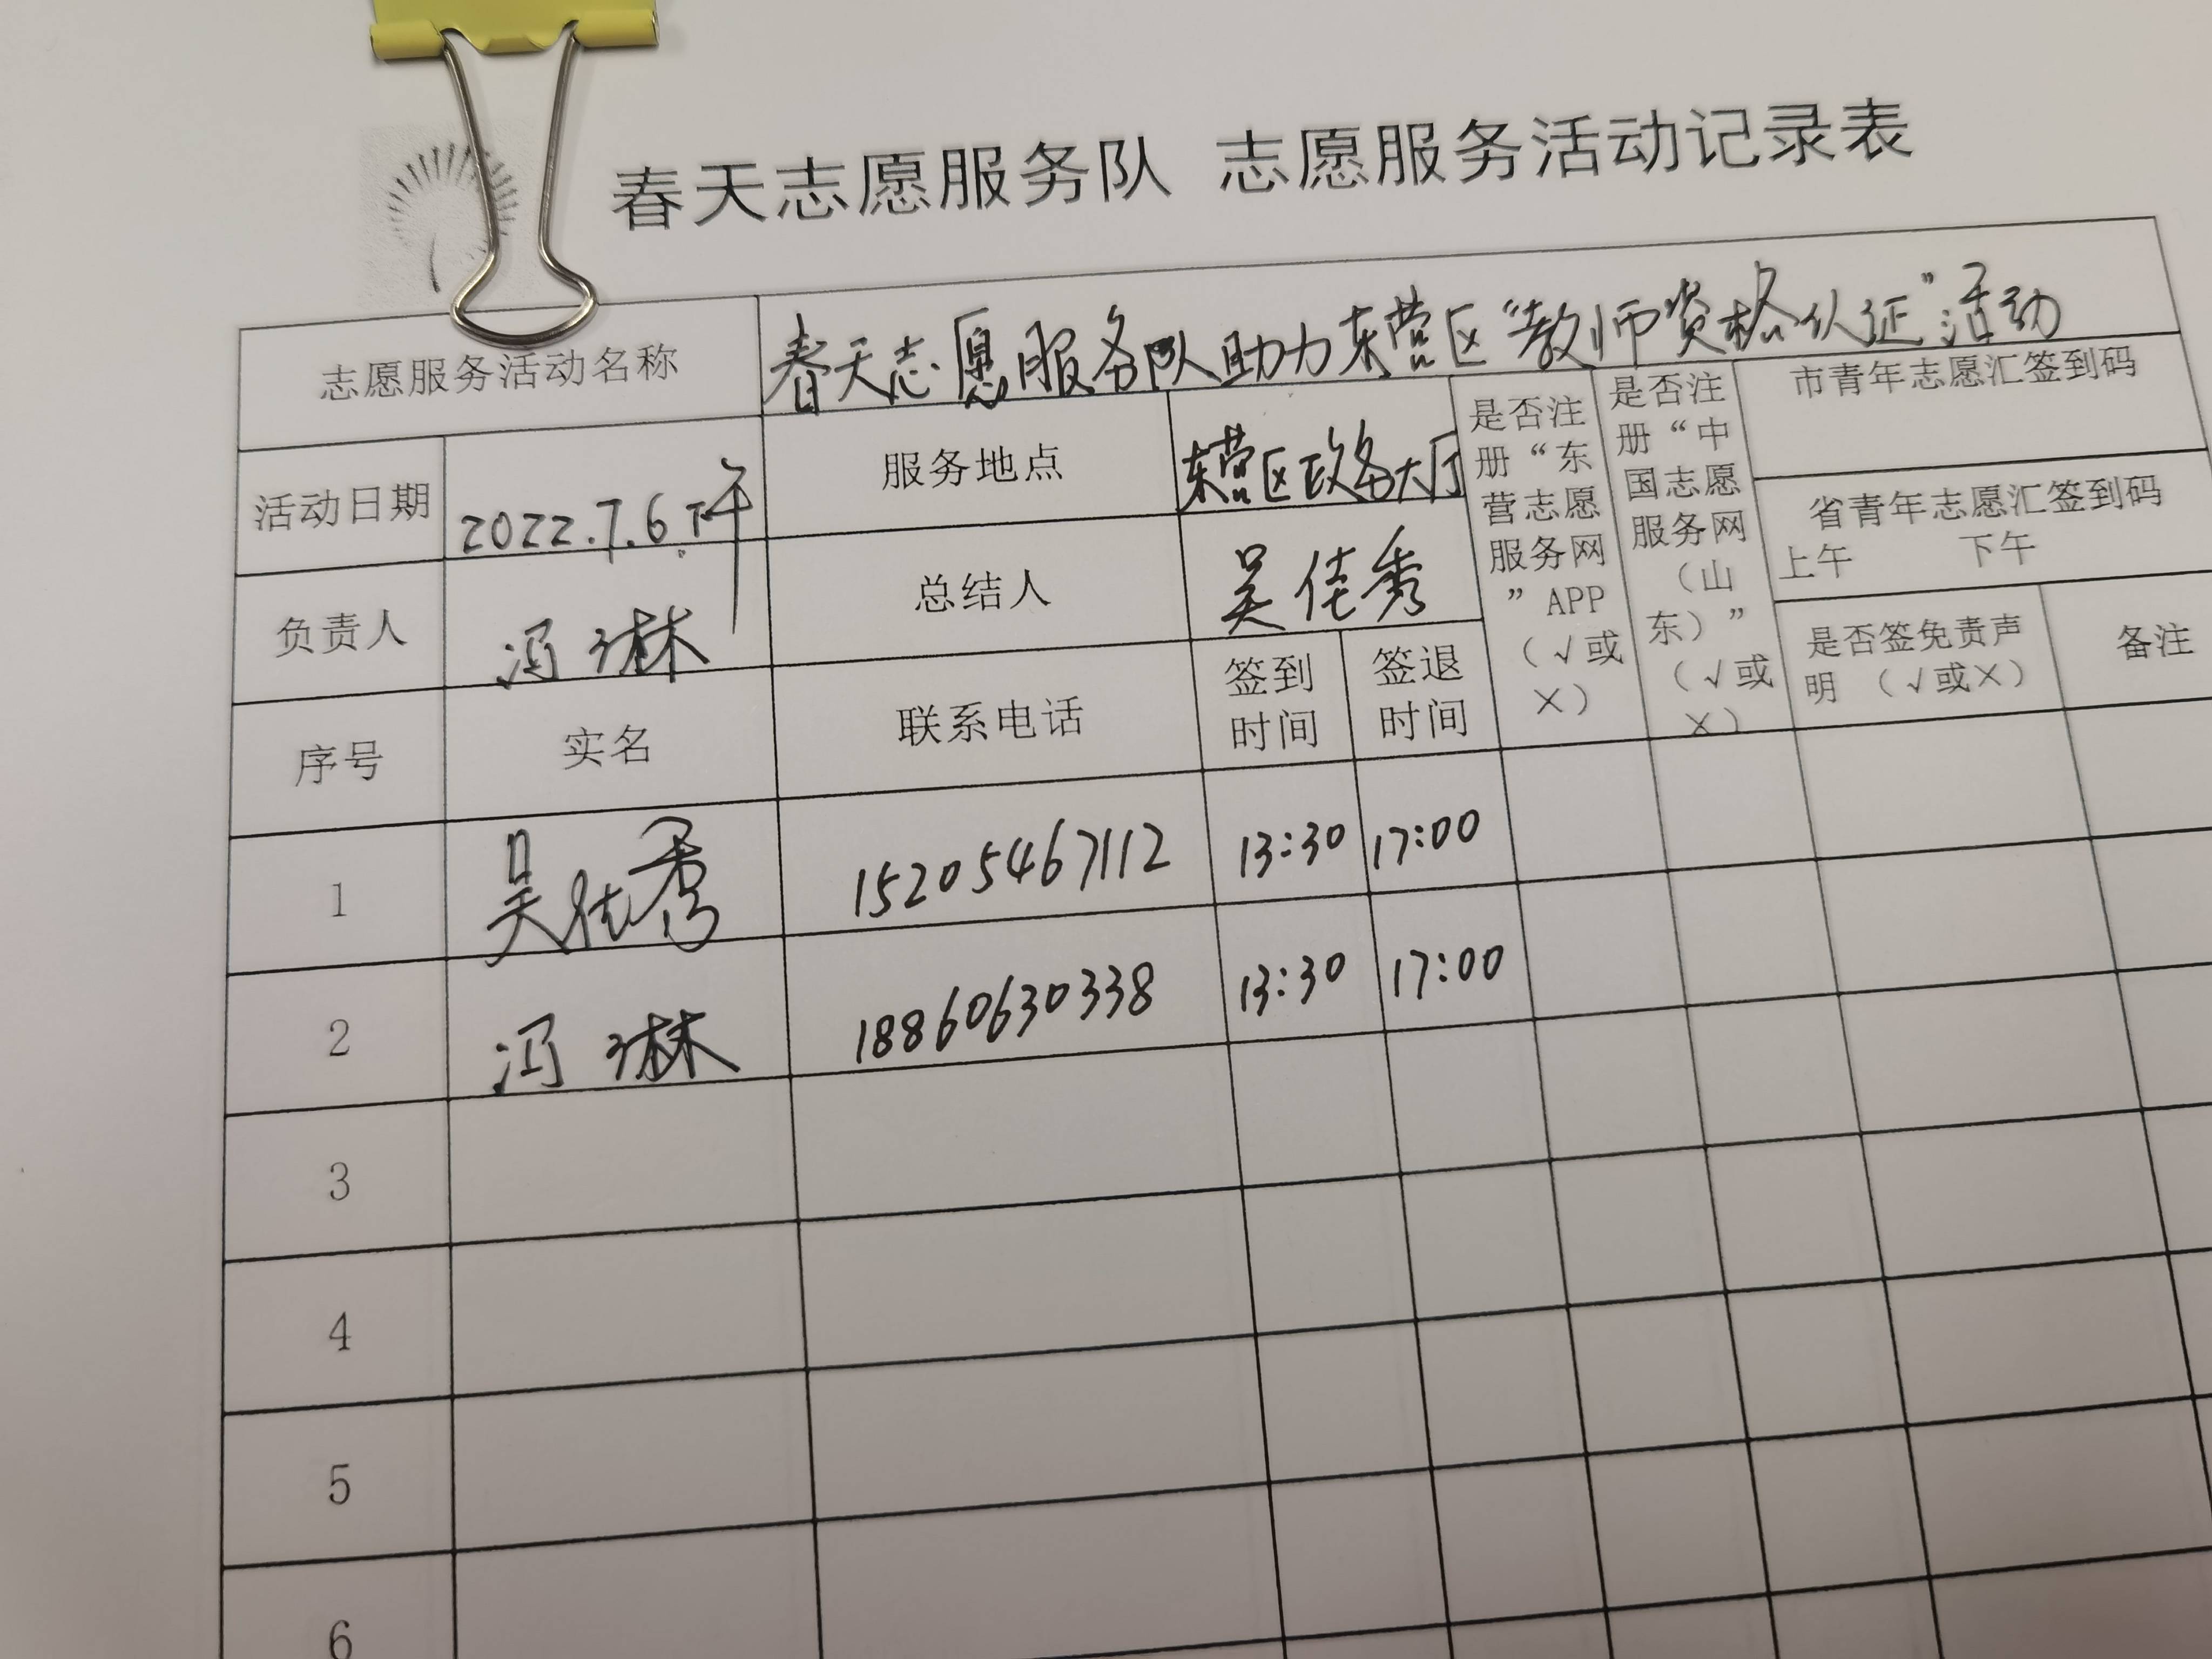 春天志愿服务队 志愿服务活动记录表
志愿服务活动名称 春天志愿服务队助力东营区“教师资格认证”活动
活动日期 2022.7.6.下午 服务地点 东营区政务大厅
是否注册“东营志愿服务网”APP（√或×）
是否注册“中国志愿服务网（山东）”（√或×）
市青年志愿汇签到码
省青年志愿汇签到码
上午 下午
负责人 冯琳 总结人 吴佳秀
是否签免责声明 （√或×） 备注
序号 实名 联系电话 签到时间 签退时间
1 吴佳秀 15205467112 13:30 17:00
2 冯琳 18860630338 13:30 17:00
3
4
5
6